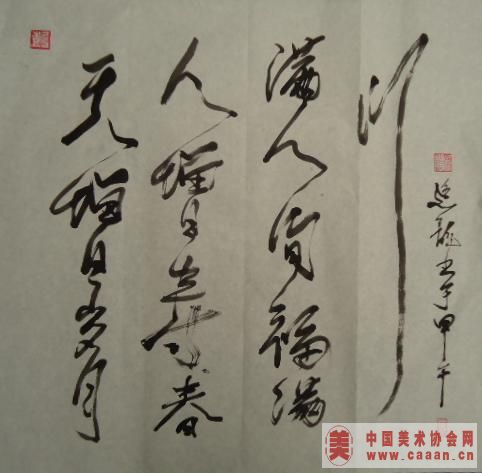 天增岁月
人增寿春
满人间福满
门
龍书于甲午
美 中国美术协会网
www.caaan.cn